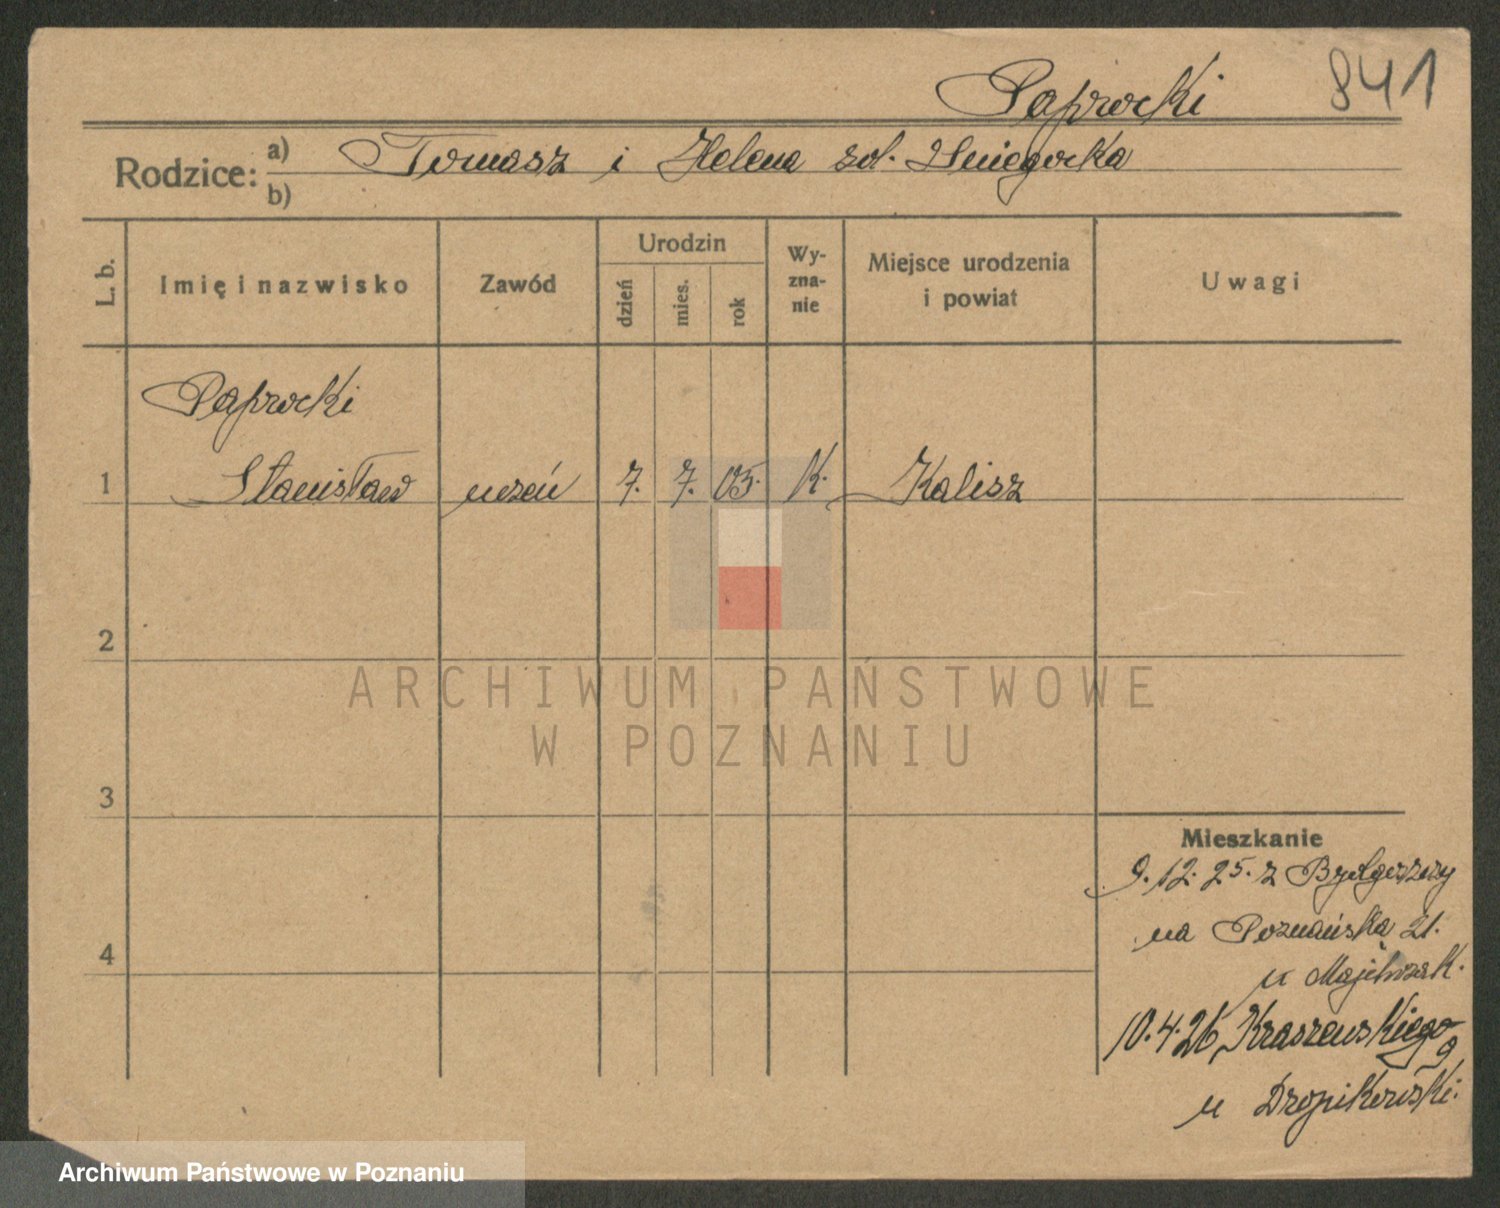 Paprocki 841
Rodzice: a) Tomasz i Helena zol.
b)
L. b.
Imię i nazwisko
Zawód
Urodzin
dzień
mies.
rok
Wy-
zna-
nie
Miejsce urodzenia
i powiat
Uwagi
Paprocki
1 Stanisław uczeń 7. 7. 05. K. Kalisz
2
3
4
Mieszkanie
9.12.25. z Bydgoszczy
na Poznańska 21.
u
10.4.26 Kraszewskiego
9
u
ARCHIWUM PAŃSTWOWE
W POZNANIU
Archiwum Państwowe w Poznaniu